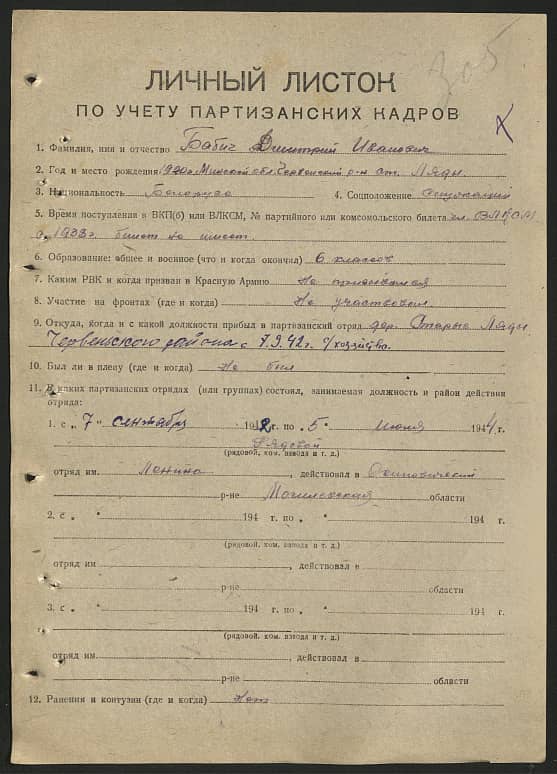 305
ЛИЧНЫЙ ЛИСТОК
ПО УЧЕТУ ПАРТИЗАНСКИХ КАДРОВ
1. Фамилия, имя и отчество Бабич Дмитрий Иванович
2. Год и место рождения 1920 г. Минской обл. Червенский р-н ст. Ляды
3. Национальность Белорус 4. Соцположение
5. Время поступления в ВКП(б) или ВЛКСМ, № партийного или комсомольского билета чл. ВЛКСМ
с 1938 г. билет не имеет.
6. Образование: общее и военное (что и когда окончил) 6 классов
7. Каким РВК и когда призван в Красную Армию Не призывался
8. Участие на фронтах (где и когда) Не участвовал.
9. Откуда, когда и с какой должности прибыл в партизанский отряд дер. Старые Ляды
Червеньского района с 7.9.42 г. с/хозяйство.
10. Был ли в плену (где и когда) Не был
11. В каких партизанских отрядах (или группах) состоял, занимаемая должность и район действия
отряда:
1. с „ 7 " сентября 1942 г. по „ 5 " июля 1944 г.
Рядовой
(рядовой, ком. взвода и т. д.)
отряд им. Ленина, действовал в Осиповический
р-не Могилевская области
2. с „ " 194 г. по „ " 194 г.
(рядовой, ком. взвода и т. д.)
отряд им , действовал в
р-не области
3. с „ " 194 г. по „ " 194 г.
(рядовой, ком. взвода и т. д.)
отряд им. , действовал в
р-не области
12. Ранения и контузии (где и когда) нет